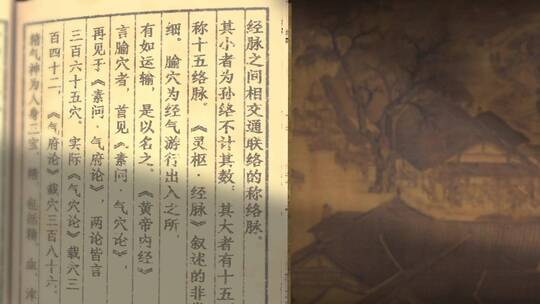 经脉之间相交通联络的称络脉。
其小者为孙络不计其数；其大者有十五
称十五络脉。《灵枢·经脉》叙述的非常
细。腧穴为经气游行出入之所，
有如运输，是以名之。《黄帝内经》
言腧穴者，首见《素问·气穴论》，
再见于《素问·气府论》，两论皆言
三百六十五穴。实际《气穴论》载穴三
百四十二，《气府论》载穴三百八十六。
精气神为人身三宝。精 包括精、血、津